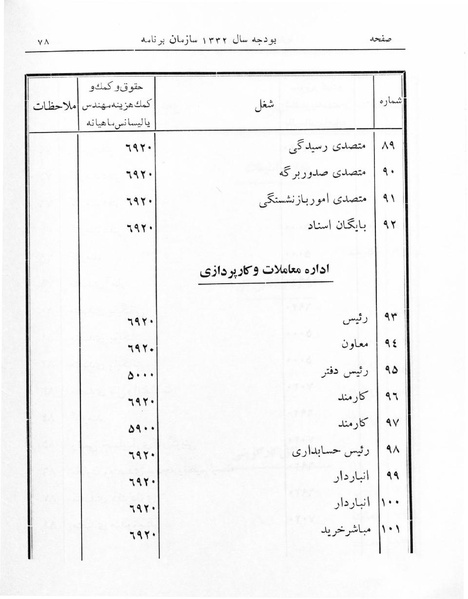 صفحه بودجه سال ۱۳۳۲ سازمان برنامه ۷۸
شماره شغل حقوق و کمك و کمك هزینه مهندس یا لیسانس ماهیانه ملاحظات
۸۹ متصدی رسیدگی ۶۹۲۰
۹۰ متصدی صدور برگه ۶۹۲۰
۹۱ متصدی امور بازنشستگی ۶۹۲۰
۹۲ بایگان اسناد ۶۹۲۰
اداره معاملات و کارپردازی
۹۳ رئیس ۶۹۲۰
۹٤ معاون ۶۹۲۰
۹۵ رئیس دفتر ۵۰۰۰
۹۶ کارمند ۶۹۲۰
۹۷ کارمند ۵۹۰۰
۹۸ رئیس حسابداری ۶۹۲۰
۹۹ انباردار ۶۹۲۰
۱۰۰ انباردار ۶۹۲۰
۱۰۱ مباشر خرید ۶۹۲۰